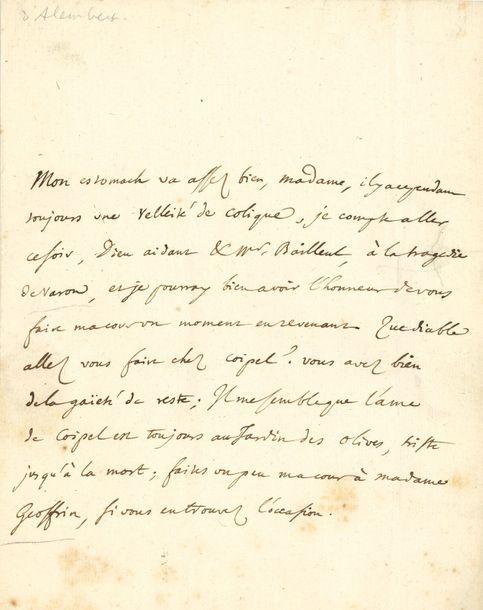 d'Alembert.
Mon estomach va assez bien, madame, il y a cependant
toujours une velleité de colique, je compte aller
ce soir, Dieu aidant & Mr. Bailleul à la tragedie
de Varon, et je pourray bien avoir l'honneur de vous
faire ma cour un moment en revenant. Que diable
allez vous faire chez Coipel? vous avez bien
de la gaieté de reste; Il me semble que l'ame
de Coipel est toujours au Jardin des olives, triste
jusqu'à la mort; faites un peu ma cour à madame
Geoffrin, si vous en trouvez l'occasion.